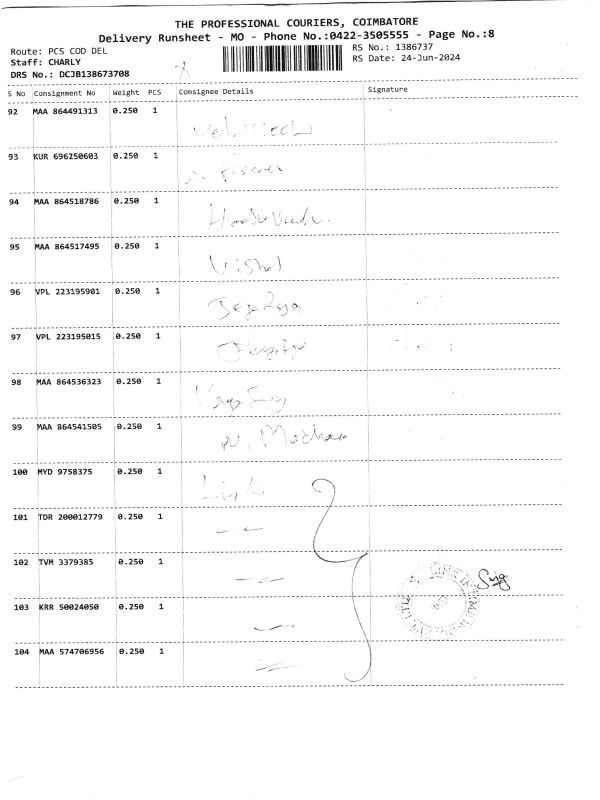 THE PROFESSIONAL COURIERS, COIMBATORE
Delivery Runsheet - MO - Phone No.:0422-3505555 - Page No.:8
Route: PCS COD DEL
RS No.: 1386737
Staff: CHARLY
RS Date: 24-Jun-2024
DRS No.: DCJB138673708
S No Consignment No Weight PCS Consignee Details Signature
92 MAA 864491313 0.250 1
93 KUR 696250603 0.250 1
94 MAA 864518786 0.250 1
95 MAA 864517495 0.250 1 Vishal
96 VPL 223195901 0.250 1
97 VPL 223195015 0.250 1
98 MAA 864536323 0.250 1
99 MAA 864541505 0.250 1
100 MYD 9758375 0.250 1
101 TDR 200012779 0.250 1
102 TVM 3379385 0.250 1
103 KRR 50024050 0.250 1
104 MAA 574706956 0.250 1